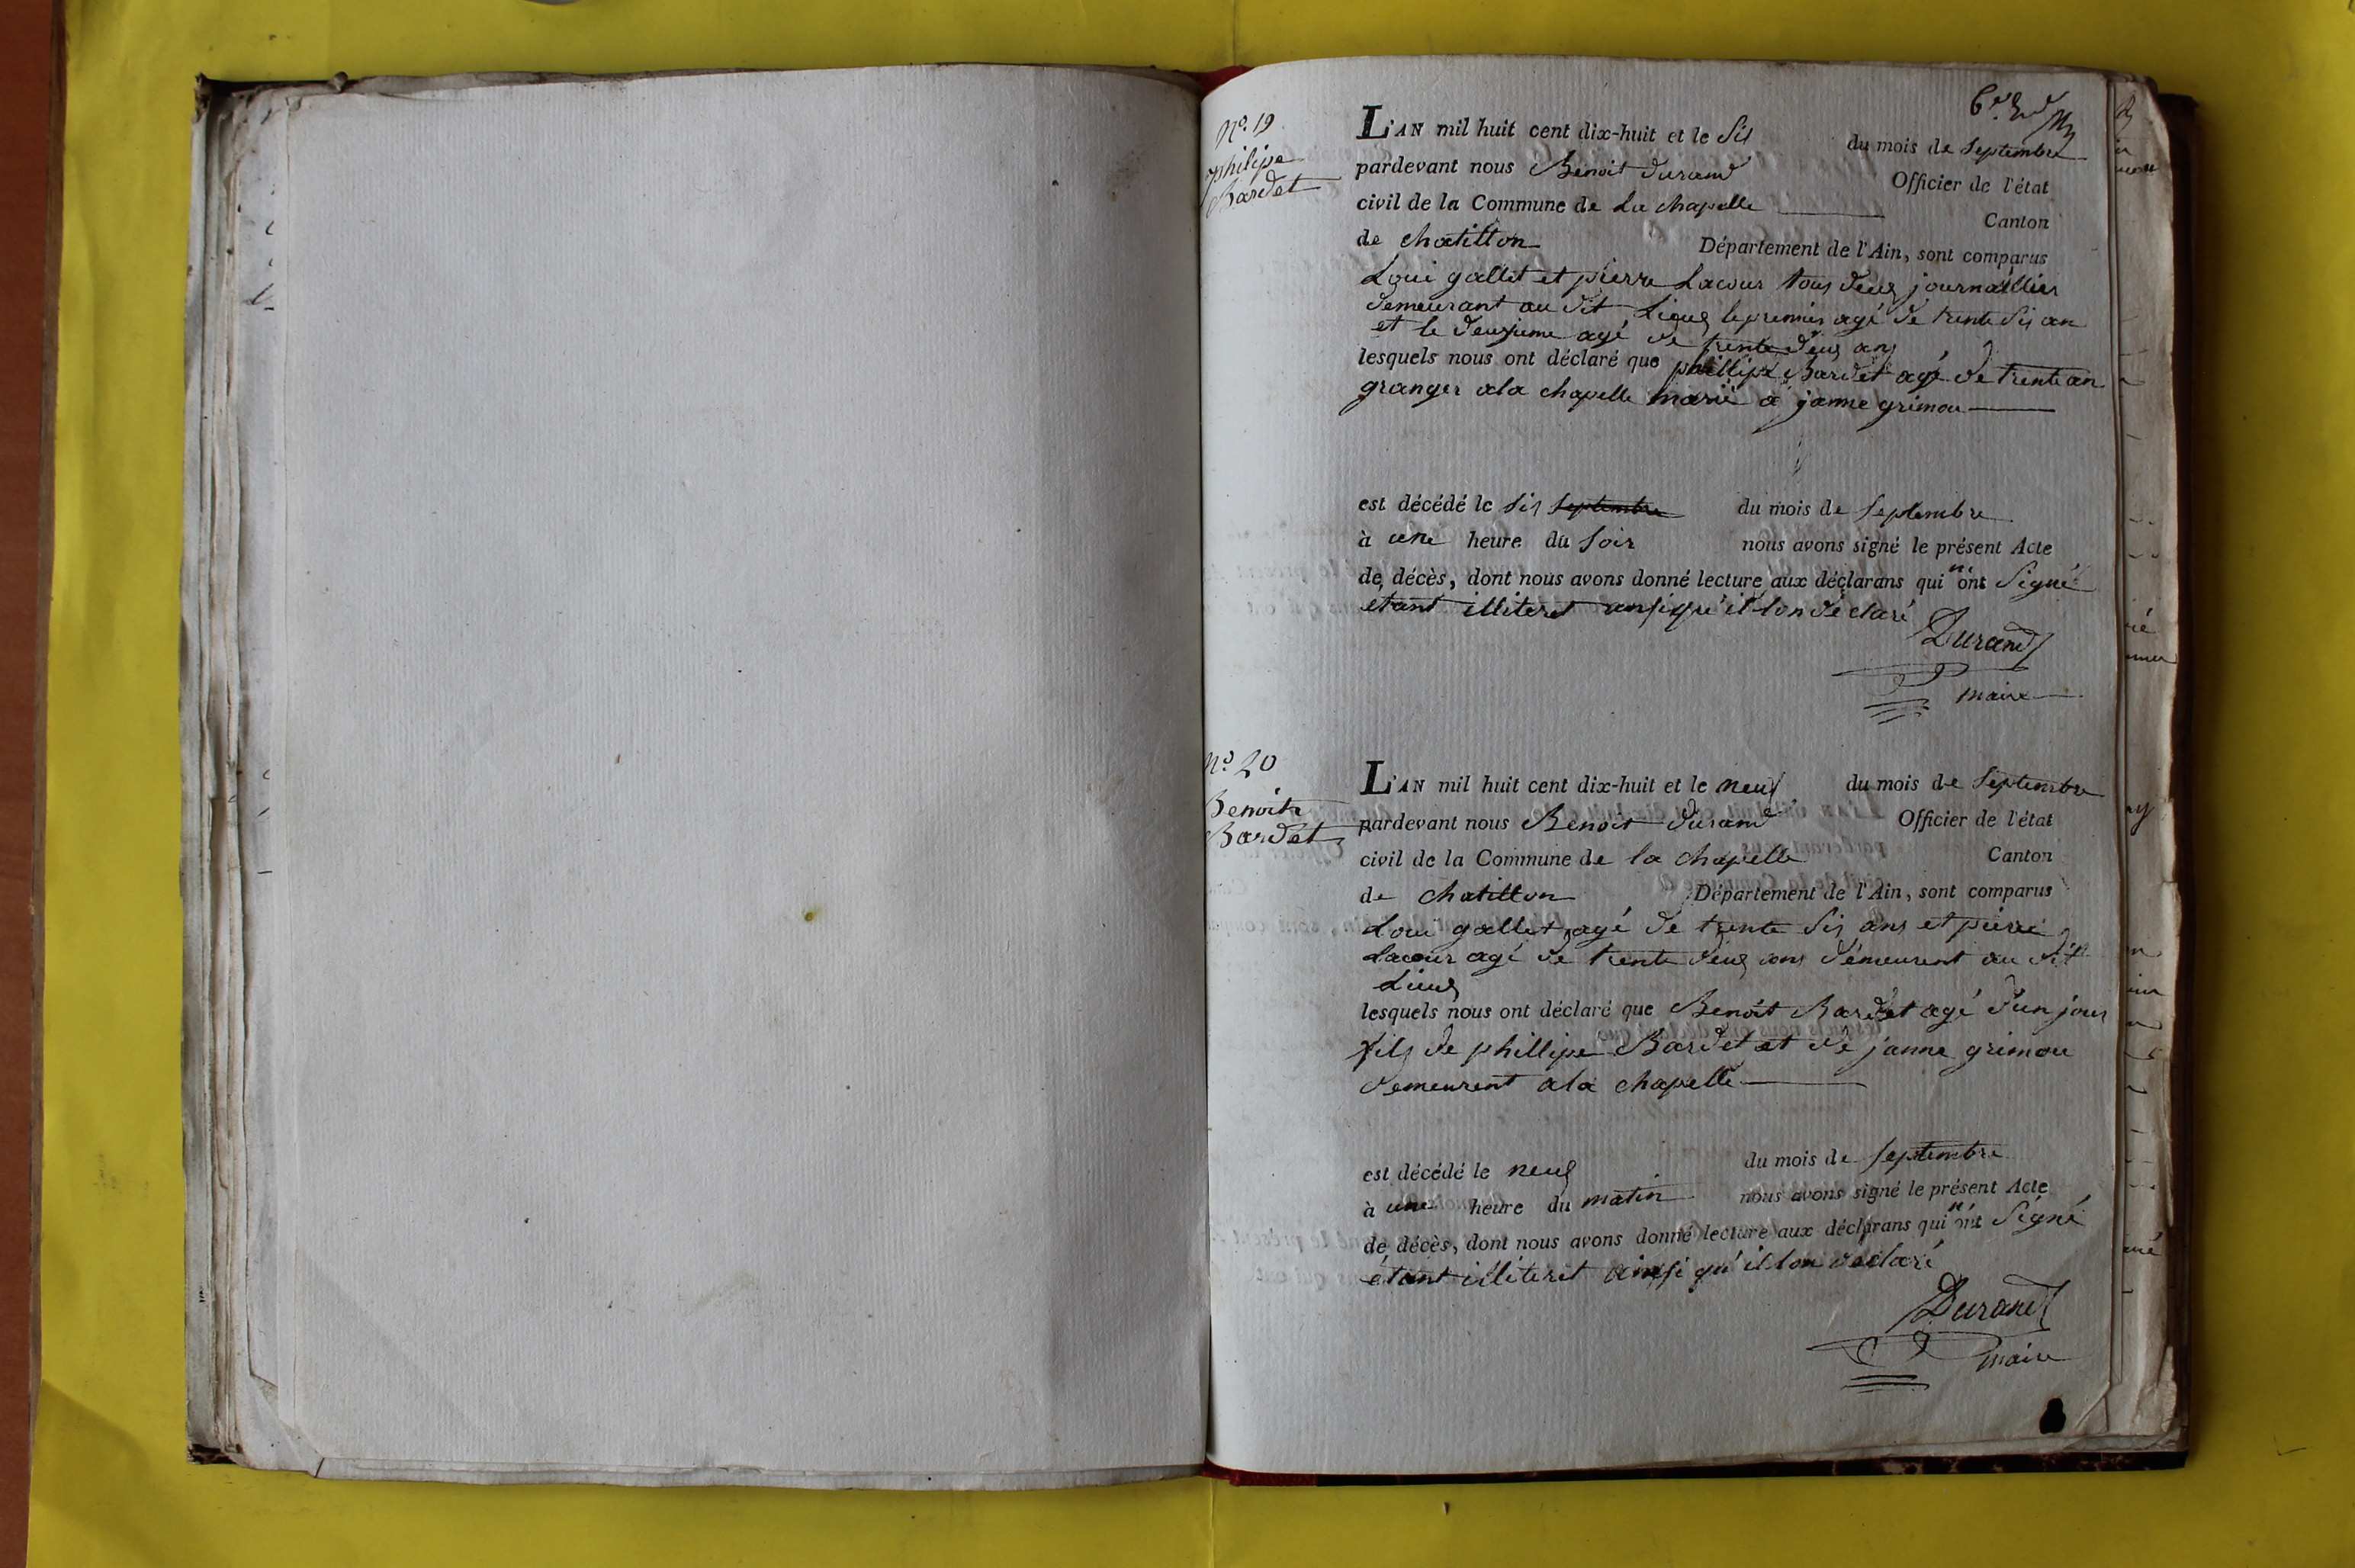 Nº. 19
philipe
Bardet
L'AN mil huit cent dix-huit et le sis du mois de septembre
pardevant nous Benoit durand Officier de l'état
civil de la Commune de La chapelle Canton
de chatillon Département de l'Ain, sont comparus
Loui gallet et pierre Lacour tous deux journallier
demeurant au dit Lieux le premier agé de trente sis an
et le deuxieme agé de trente deux ans
lesquels nous ont déclaré que phillipe Bardet agé de trente an
granger a la chapelle marié a janne grimou
est décédé le sis septembre du mois de septembre
à une heure du soir nous avons signé le présent Acte
de décès, dont nous avons donné lecture aux déclarans qui n'ont signé
etant illiteret ansi qu'il lon déclaré
Durand
maire
Nº 20
Benoit
Bardet
L'AN mil huit cent dix-huit et le neuf du mois de septembre
pardevant nous Benoit durand Officier de l'état
civil de la Commune de la chapelle Canton
de chatillon Département de l'Ain, sont comparus
Loui gallet agé de trente sis ans et pierre
Lacour agé de trente deux ans demeurent au dit
Lieux
lesquels nous ont déclaré que Benoit Bardet agé d'un jour
fils de phillipe Bardet et de janne grimou
demeurent a la chapelle
est décédé le neuf du mois de septembre
à une heure du matin nous avons signé le présent Acte
de décès, dont nous avons donné lecture aux déclarans qui n'ont signé
étant illiteret ainssi qu'il lon déclaré
Durand
maire